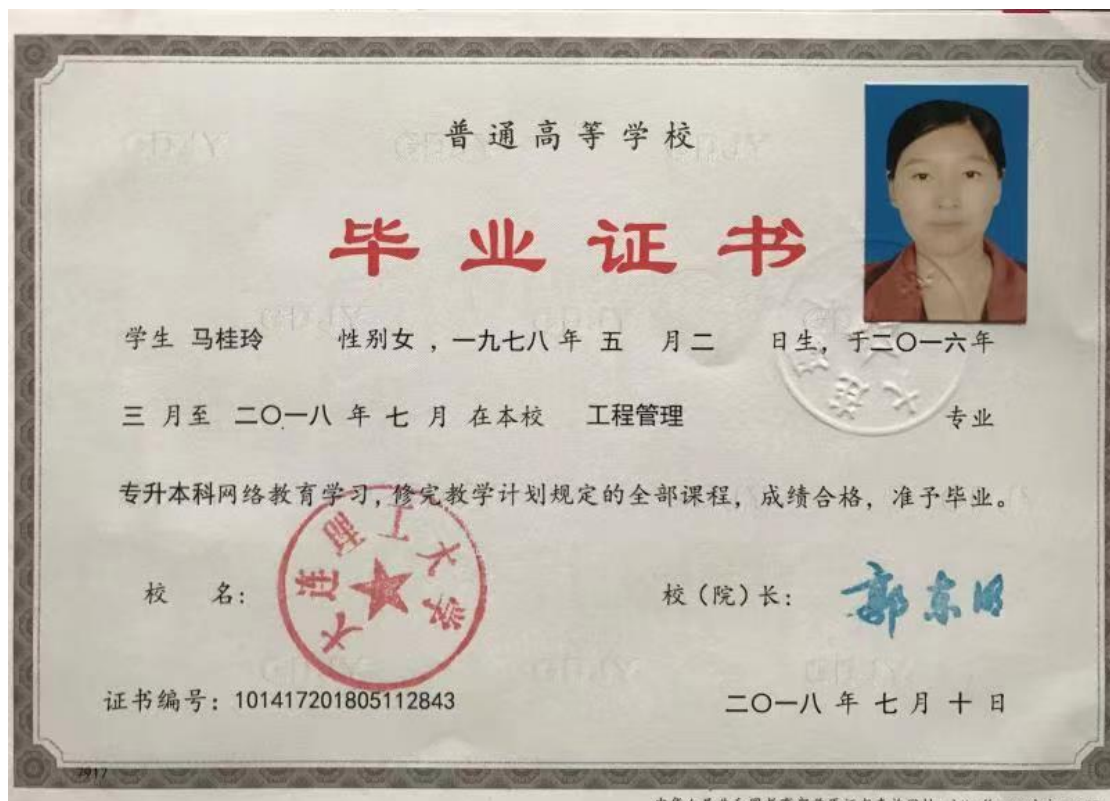 普通高等学校
毕业证书
学生 马桂玲 性别女 ，一九七八 年 五 月二 日生，于二〇一六年
三 月至 二〇一八 年 七 月 在本校 工程管理 专业
专升本科网络教育学习，修完教学计划规定的全部课程，成绩合格，准予毕业。
校 名：
大连理工大学
校（院）长：
郭东明
证书编号：101417201805112843
二〇一八 年 七 月 十 日